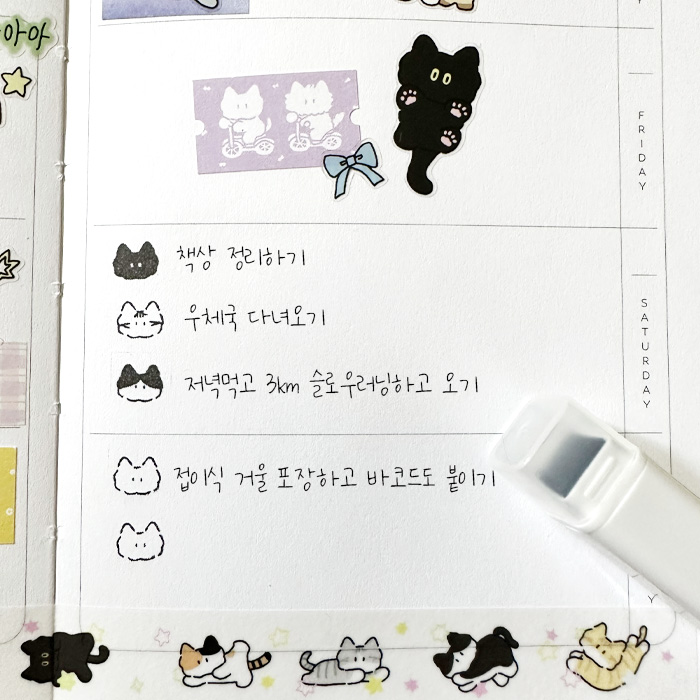 아아
FRIDAY
책상 정리하기
우체국 다녀오기
저녁먹고 3km 슬로우러닝하고 오기
SATURDAY
접이식 거울 포장하고 바코드도 붙이기
Y